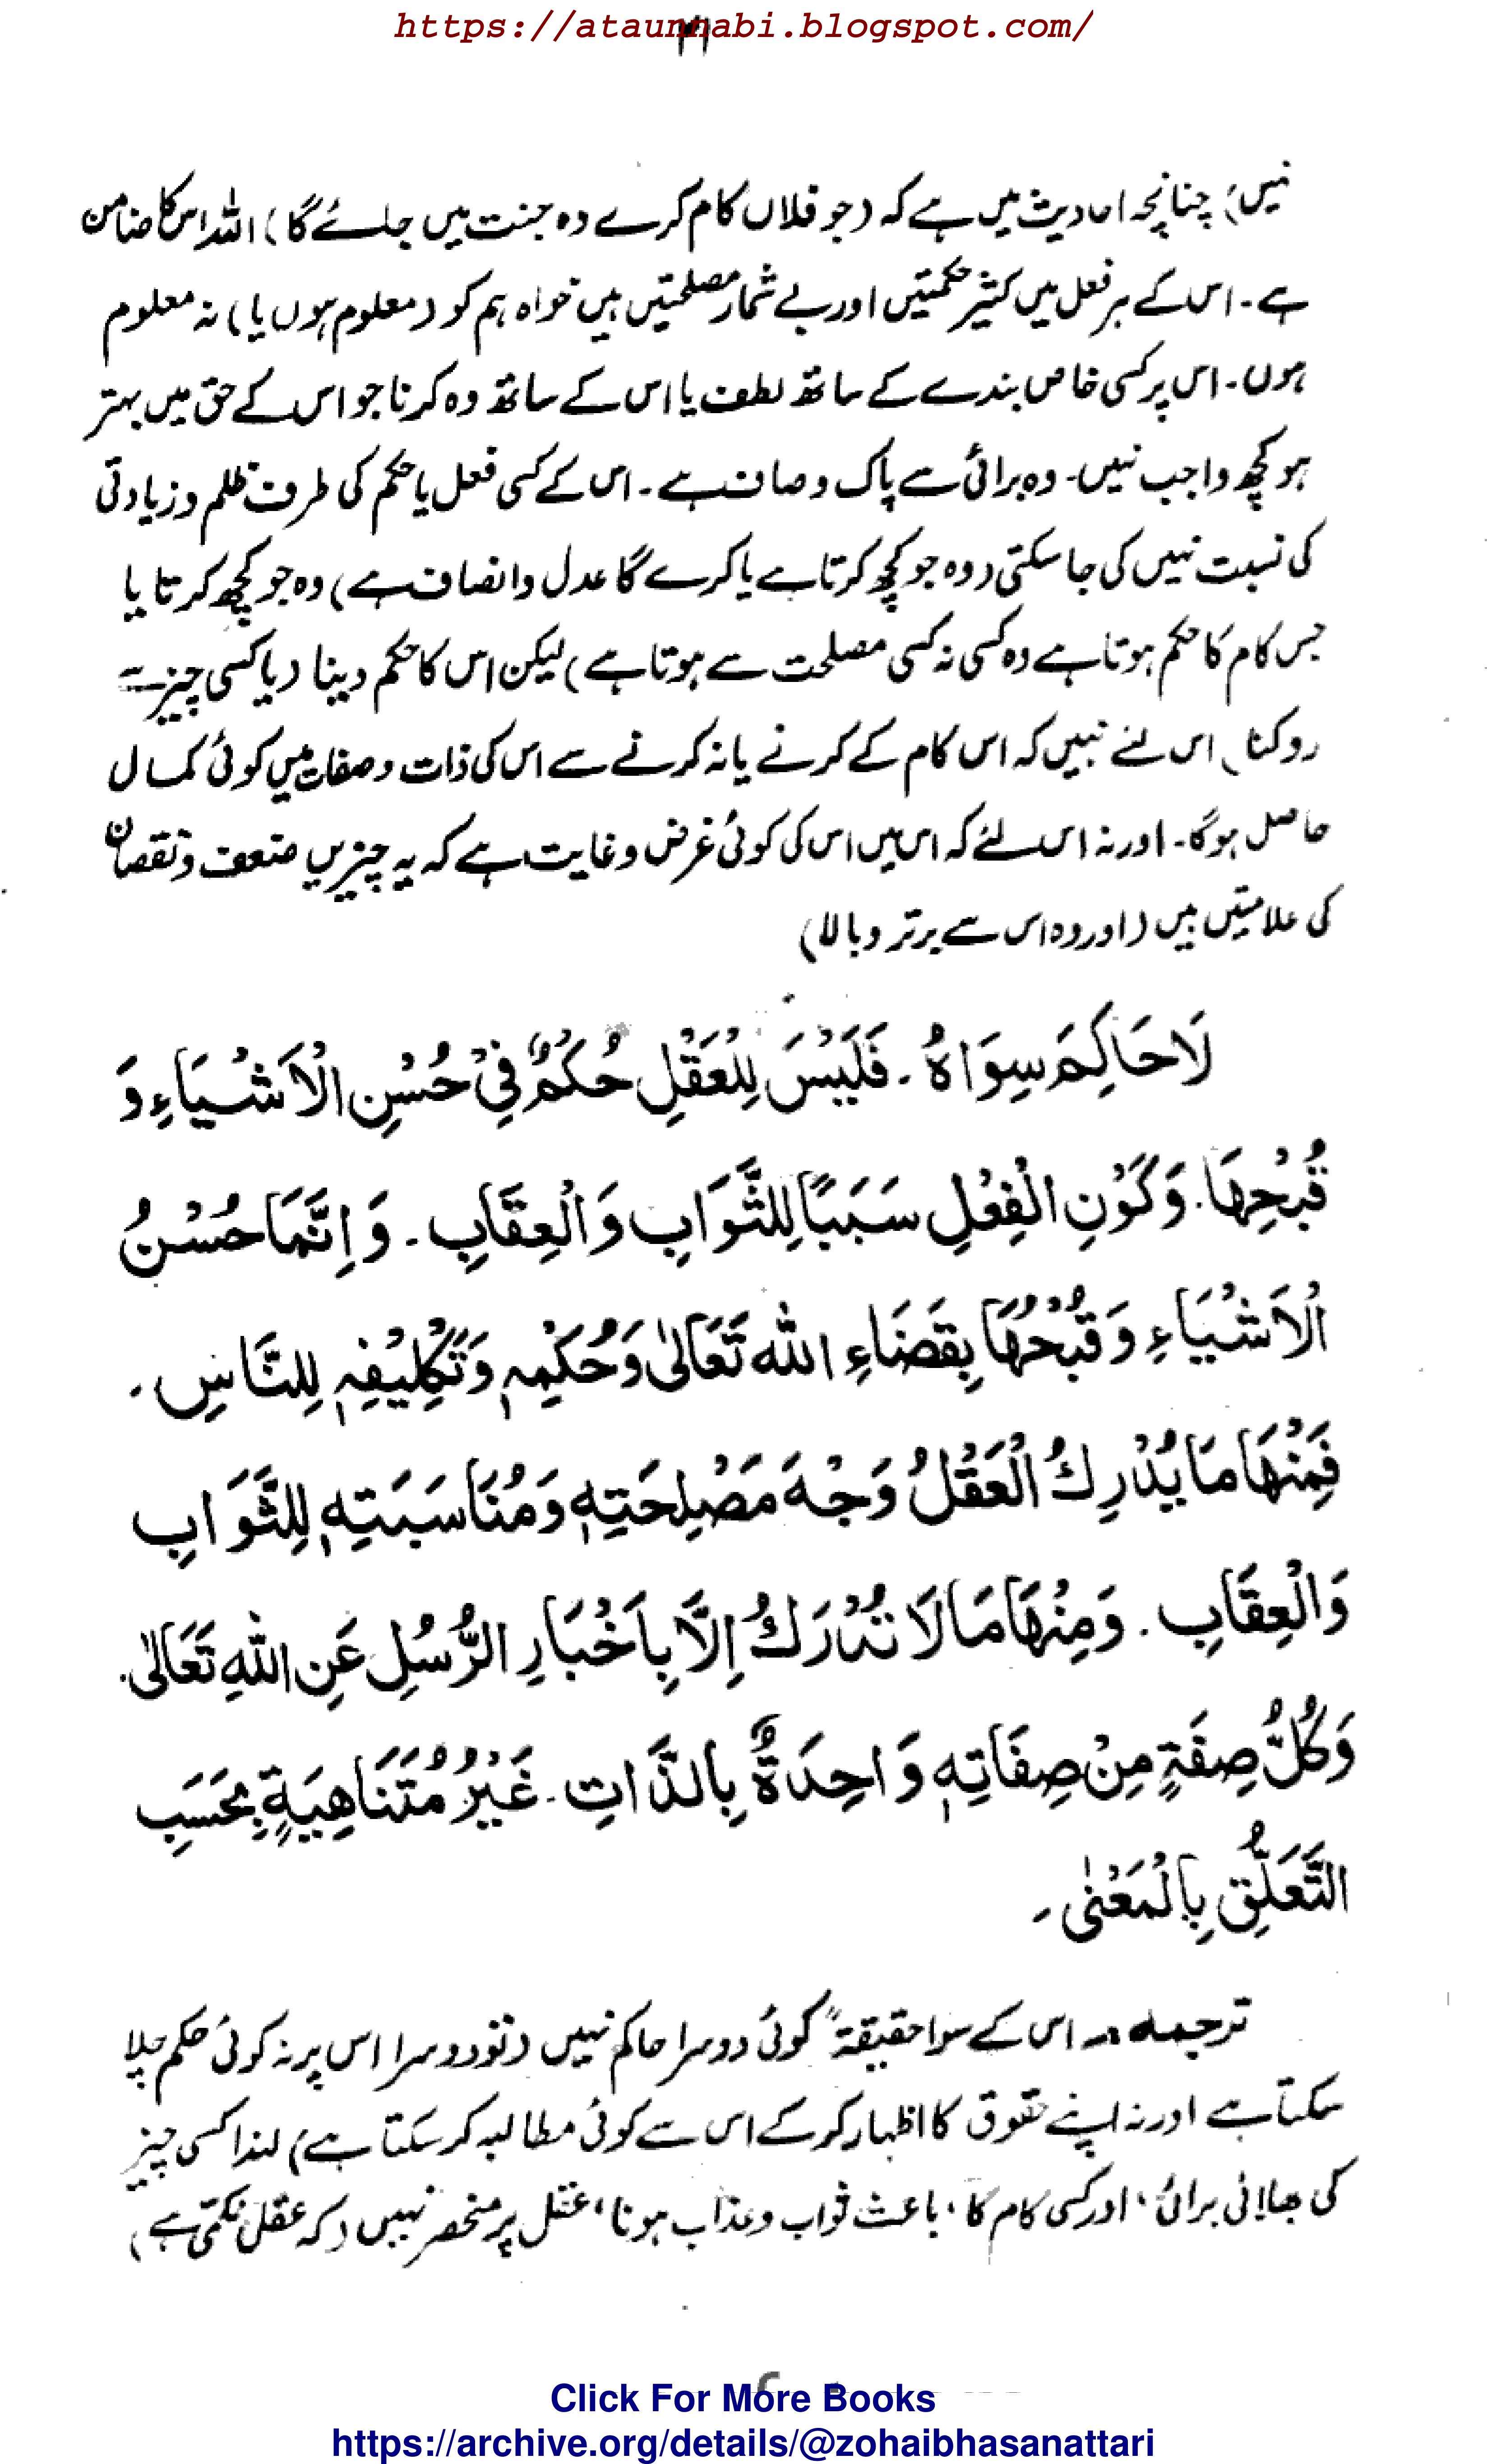 https://ataunnabi.blogspot.com/
نہیں) چنانچہ احادیث میں ہے کہ (جو فلاں کام کرے وہ جنت میں جائے گا) اللہ اس کا ضامن
ہے۔ اس کے ہر فعل میں کثیر حکمتیں اور بے شمار مصلحتیں ہیں خواہ ہم کو (معلوم ہوں یا) نہ معلوم
ہوں۔ اس پر کسی خاص بندے کے ساتھ لطف یا اس کے ساتھ وہ کرنا جو اس کے حق میں بہتر
ہو کچھ واجب نہیں۔ وہ برائی سے پاک و صاف ہے۔ اس کے کسی فعل یا حکم کی طرف ظلم و زیادتی
کی نسبت نہیں کی جا سکتی (وہ جو کچھ کرتا ہے یا کرے گا عدل و انصاف ہے) وہ جو کچھ کرتا یا
جس کام کا حکم ہوتا ہے وہ کسی نہ کسی مصلحت سے ہوتا ہے) لیکن اس کا حکم دینا (یا کسی چیز سے
روکنا) اس لئے نہیں کہ اس کام کے کرنے یا نہ کرنے سے اس کی ذات و صفات میں کوئی کمال
حاصل ہوگا۔ اور نہ اس لئے کہ اس میں اس کی کوئی غرض و غایت ہے کہ یہ چیزیں ضعف و نقصان
کی علامتیں ہیں (اور وہ اس سے برتر و بالا)
لَاحَاكِمَ سِوَاهُ۔ فَلَيْسَ لِلْعَقْلِ حُكْمٌ فِيْ حُسْنِ الْاَشْيَاءِ وَ
قُبْحِهَا۔ وَكَوْنِ الْفِعْلِ سَبَبًا لِلثَّوَابِ وَالْعِقَابِ۔ وَاِنَّمَا حُسْنُ
الْاَشْيَاءِ وَقُبْحُهَا بِقَضَاءِ اللّٰه تَعَالٰى وَحُكْمِهٖ وَتَكْلِيْفِهٖ لِلنَّاسِ۔
فَمِنْهَا مَا يُدْرِكُ الْعَقْلُ وَجْهَ مَصْلِحَتِهٖ وَمُنَاسَبَتِهٖ لِلثَّوَابِ
وَالْعِقَابِ۔ وَمِنْهَا مَا لَا تُدْرَكُ اِلَّا بِاَخْبَارِ الرُّسُلِ عَنِ اللّٰهِ تَعَالٰى۔
وَكُلُّ صِفَةٍ مِنْ صِفَاتِهٖ وَاحِدَةٌ بِالذَّاتِ۔ غَيْرُ مُتَنَاهِيَةٍ بِحَسَبِ
التَّعَلُّقِ بِالْمَعْنٰى۔
ترجمہ :۔ اس کے سوا حقیقۃً کوئی دوسرا حاکم نہیں (تو دوسرا اس پر نہ کوئی حکم چلا
سکتا ہے اور نہ اپنے حقوق کا اظہار کرکے اس سے کوئی مطالبہ کر سکتا ہے) لہذا کسی چیز
کی بھلائی برائی، اور کسی کام کا، باعث ثواب و عذاب ہونا، عقل پر منحصر نہیں (کہ عقل نکمّی ہے)
Click For More Books
https://archive.org/details/@zohaibhasanattari